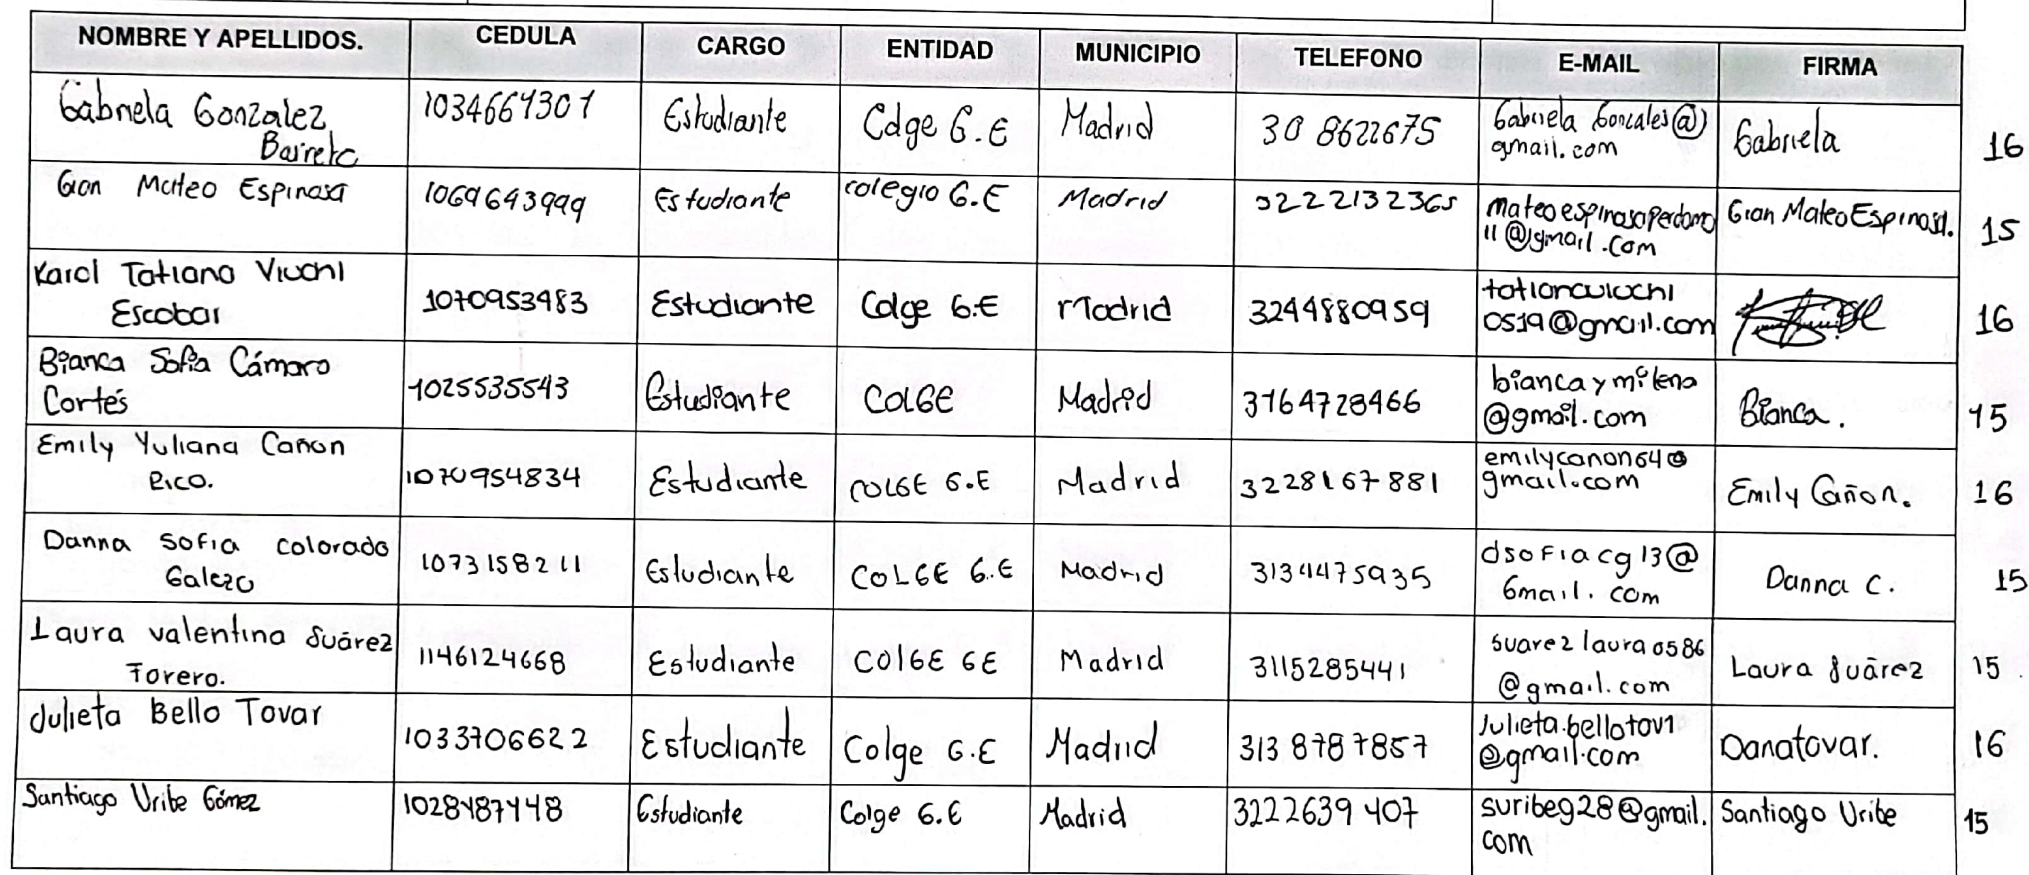 NOMBRE Y APELLIDOS. CEDULA CARGO ENTIDAD MUNICIPIO TELEFONO E-MAIL FIRMA
Gabriela Gonzalez Barreto 1034661301 Estudiante Colge G.E Madrid 30 8622675 Gabriela Gonzales@gmail.com Gabriela 16
Gian Mateo Espinosa 1069643999 Estudiante colegio G.E Madrid 3222132365 mateoespinosaperdomo11@gmail.com Gian Mateo Espinosa. 15
Karol Tatiana Viuchi Escobar 1070953483 Estudiante Colge G.E Madrid 3244880959 tatianaviuchi0519@gmail.com 16
Bianca Sofia Cámaro Cortés 1025535543 Estudiante COLGE Madrid 3164728466 biancaymilena@gmail.com Bianca. 15
Emily Yuliana Cañon Rico. 1070954834 Estudiante COLGE G.E Madrid 3228167881 emilycanon64@gmail.com Emily Cañon. 16
Danna Sofia Colorado Galezo 1073158211 Estudiante COLGE G.E Madrid 3134475935 dsofiacg13@Gmail.com Danna C. 15
Laura Valentina Suárez Forero. 1146124668 Estudiante COLGE GE Madrid 3115285441 suarezlaura0586@gmail.com Laura Suárez 15
Julieta Bello Tovar 1033706622 Estudiante Colge G.E Madrid 3138787857 Julieta.bellotov1@gmail.com Danatovar. 16
Santiago Uribe Gómez 1028487448 Estudiante Colge G.E Madrid 3222639407 suribeg28@gmail.com Santiago Uribe 15